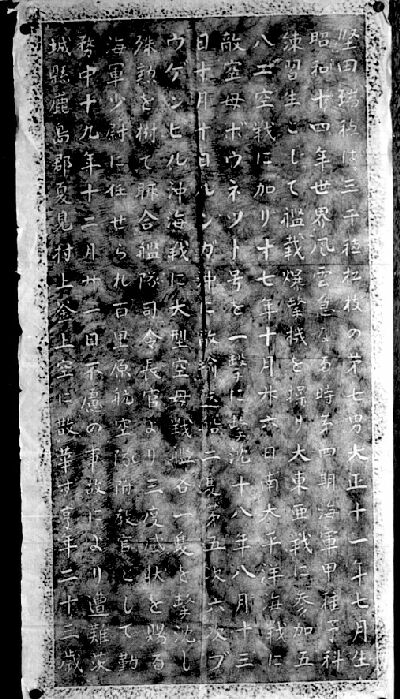 堅田瑞穂は三平穂松枝の第七男大正十一年七月生
昭和十四年世界風雲急なる時第四期海軍甲種予科
練習生として艦載爆撃機を操り大東亜戦に参加五
八エ空戦に加り十七年十月廿六日南太平洋海戦に
敵空母ホウネット号を一撃に撃沈十八年八月十三
日十月十日ルンガ沖に敵 二隻第五次六次ブ
ウゲンビル沖海戦に大型空母戦艦合一隻を撃沈し
殊勲を樹て聯合艦隊司令長官より三度感状を賜る
海軍少尉に任せられ百里原航空隊附教官にして勤
務中十九年十二月廿一日不慮の事故により遭難茨
城縣鹿島郡夏見村上釜上空に散華す享年二十三歳